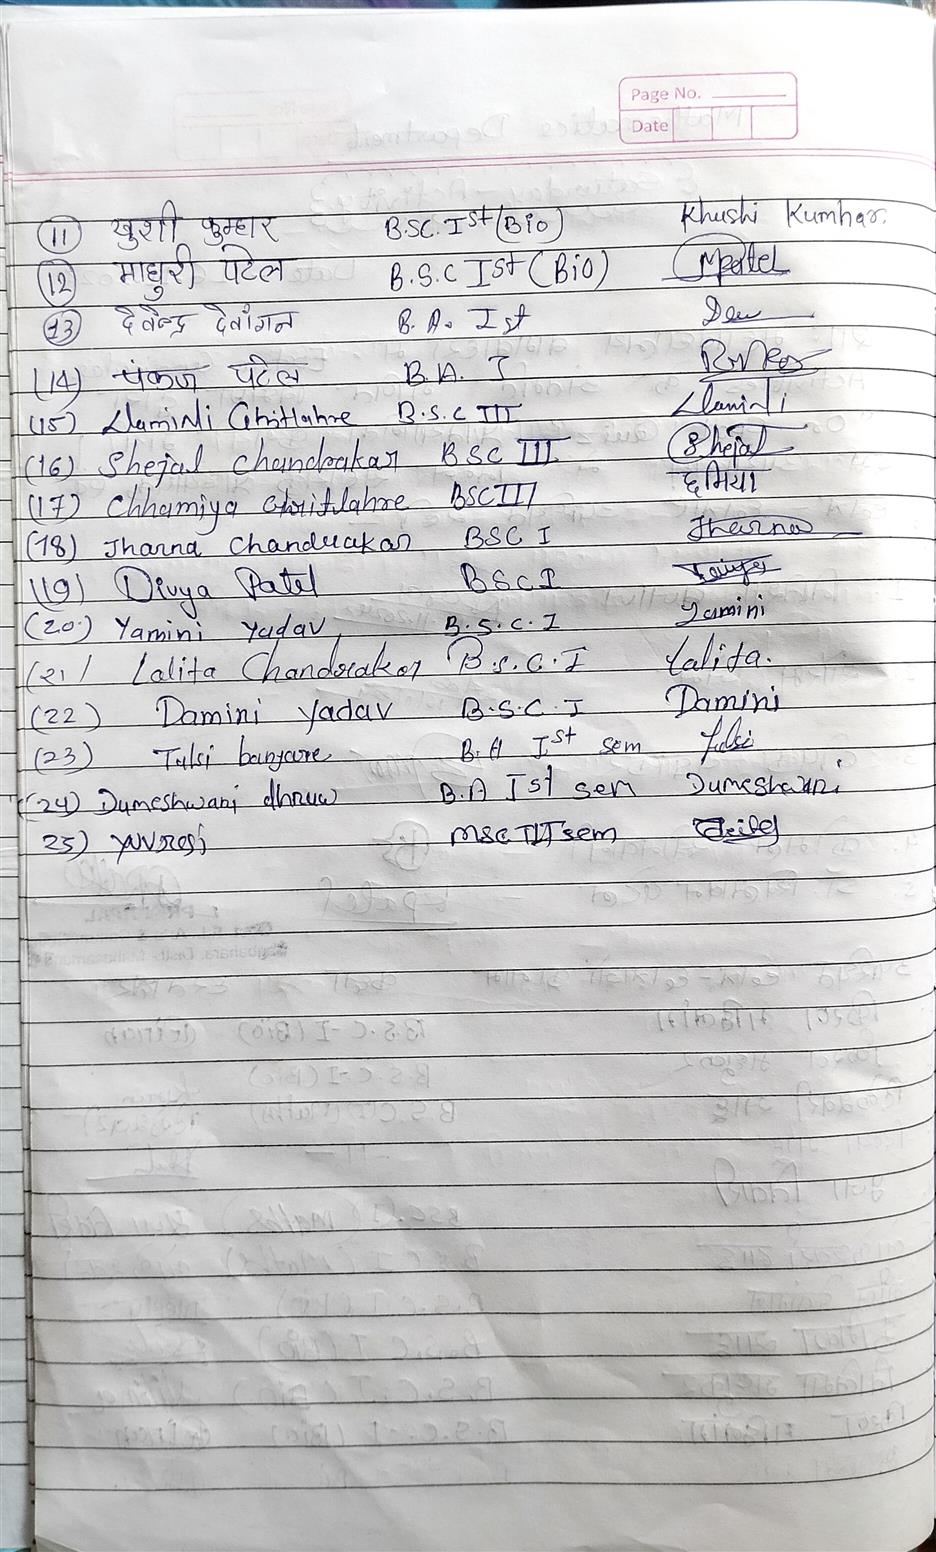 Page No.
Date
11 खुशी कुम्हार B.SC. Ist (Bio) Khushi Kumhar.
12 माधुरी पटेल B.S.C Ist (Bio) Mpatel
13 देवेन्द्र देवांगन B.A. Ist Dew
(14) पंकज पटेल B.A. I
(15) Damini Chitlahre B.S.C III Damini
(16) Shejal Chandrakar BSC III Shejal
(17) Chhamiya Chitlahre BSC III छमिया
(18) Jharna Chandrakar BSC I Jharna
(19) Divya Patel BSC I
(20.) Yamini Yadav B.S.C. I Yamini
(21) Lalita Chandrakar B.S.C. I Lalita.
(22) Damini Yadav B.S.C. I Damini
(23) Tulsi banjare B.A Ist sem Tulsi
(24) Dumeshwari dhruw B.A Ist sem Dumeshwari
25) MSC III sem